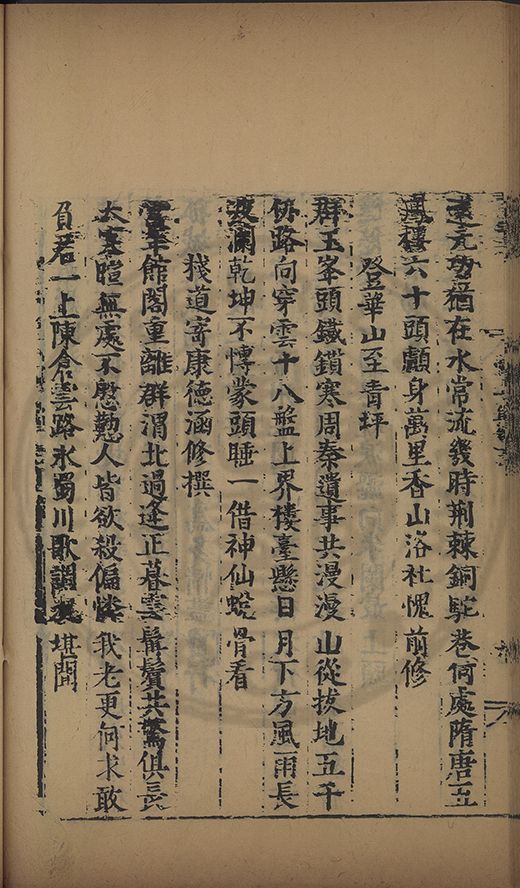 元功猶在水常流幾時荆棘銅駝巷何處隋唐五
鳳樓六十頭顱身萬里香山洛社愧前修
登華山至青坪
群玉峯頭鐵鎖寒周秦遺事共漫漫山從拔地五千
仞路向穿雲十八盤上界樓臺懸日月下方風雨長
波瀾乾坤不慱蒙頭睡一借神仙蛻骨看
棧道寄康德涵修撰
當年館閣重離群渭北過逢正暮雲鬚鬢共驚俱長
大寒暄無處不慇懃人皆欲殺偏憐我老更何求敢
負君一上陳倉雲路永蜀川歌調 堪聞